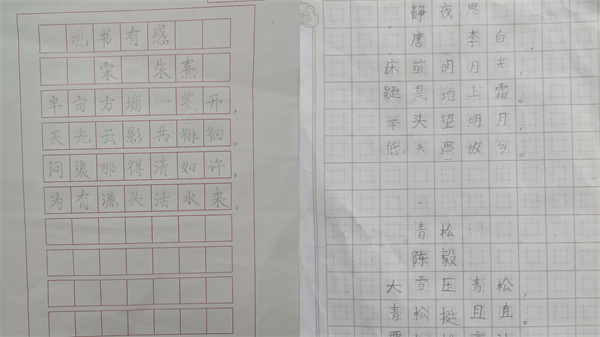 观书有感
宋 朱熹
半亩方塘一鉴开，
天光云影共徘徊。
问渠那得清如许，
为有源头活水来
静夜思
唐 李白
床前明月光，
疑是地上霜。
举头望明月，
低头思故乡。
青松
陈毅
大雪压青松，
青松挺且直。